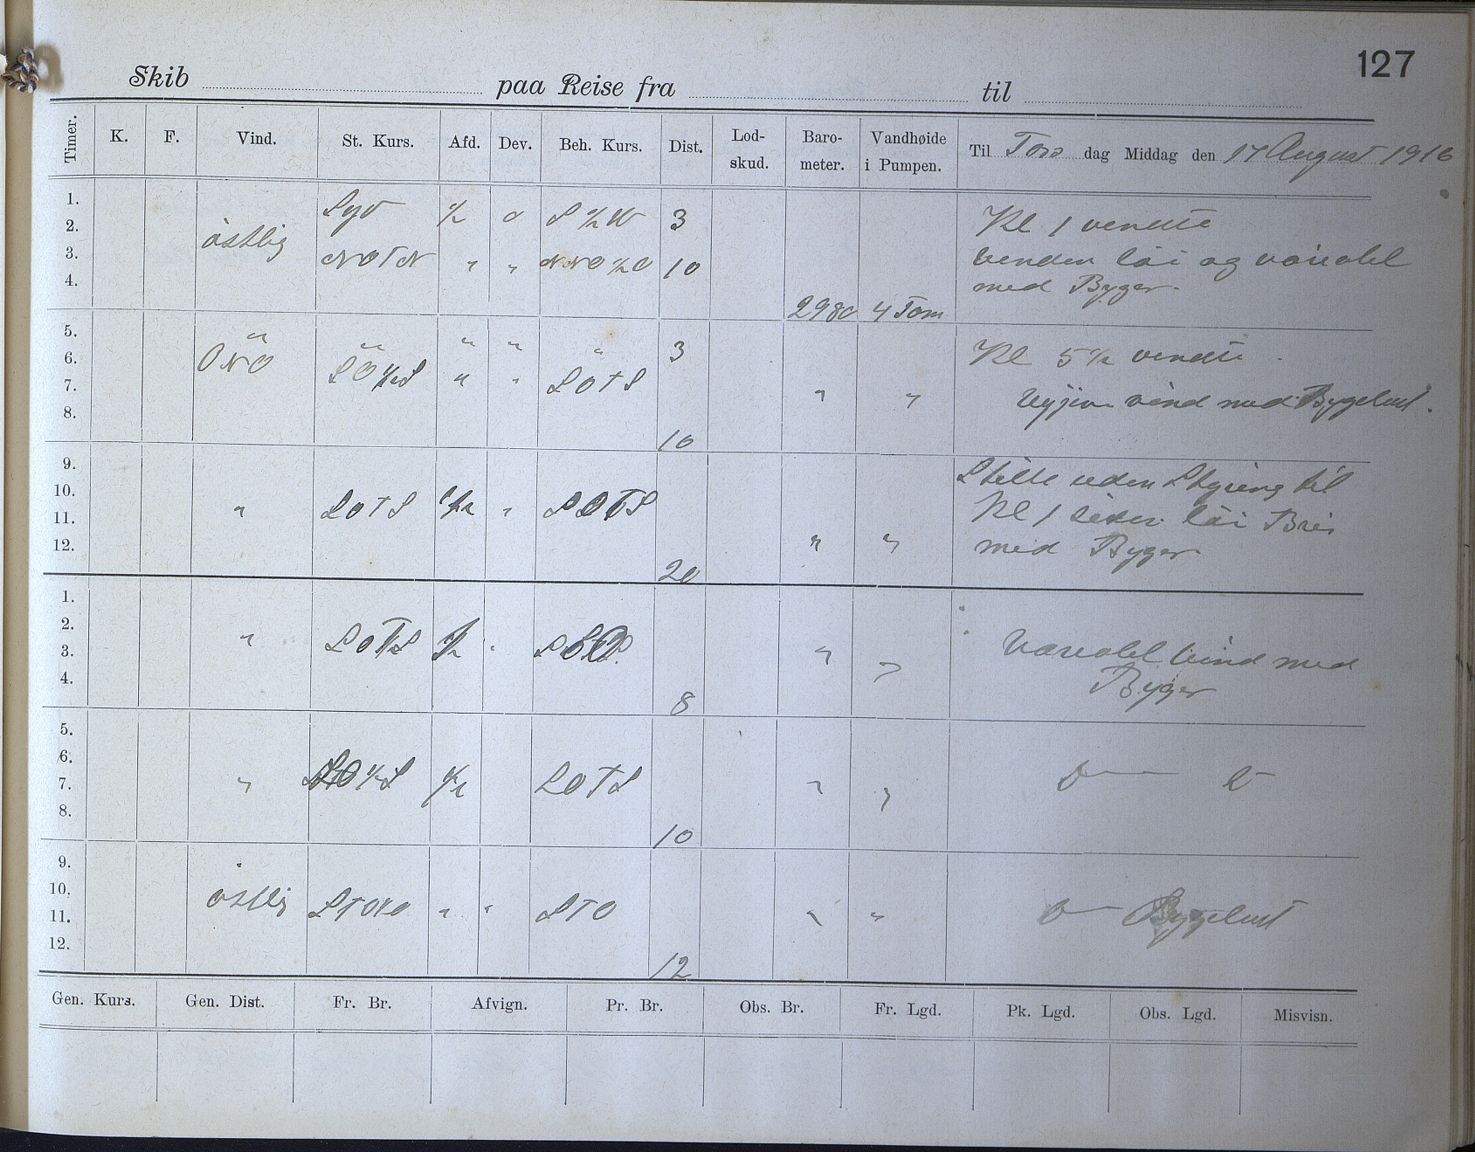 127
Skib paa Reise fra til
Timer. K. F. Vind. St. Kurs. Afd. Dev. Beh. Kurs. Dist. Lod-skud. Baro-meter. Vandhøide i Pumpen. Til Tors dag Middag den 17 August 1916
1. 3 Kl 1 vendte
2. østlig
3. NOTN " " NNO ½ O 10 vinden løi og variabel
4. med Byger.
2980 4 Tom
5. " " " " " 3 Kl 5 ½ vendte
6. ONO SO ½ S " " SOTS
7. " " vind med Bygeluft.
8. 10
9. Stille uden Styring til
10. " SOTS ½ " SOTS Kl 1 siden løi Bris
11. " " med Byger
12. 20
1.
2. " SOTS ½ " Variabel vind med
3. " " Byger
4. 8
5.
6. " SO ½ S ½ SOTS " " D— o
7.
8. 10
9.
10. østlig " " STO D— Bygeluft
11. " "
12. 12
Gen. Kurs. Gen. Dist. Fr. Br. Afvign. Pr. Br. Obs. Br. Fr. Lgd. Pk. Lgd. Obs. Lgd. Misvisn.